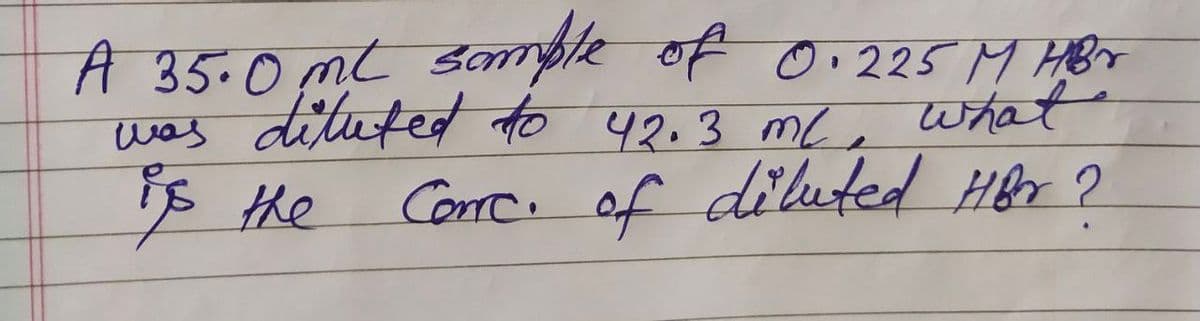 A 35.0 mL sample of 0.225 M HBr
was diluted to 42.3 mL, what
is the Conc. of diluted HBr ?